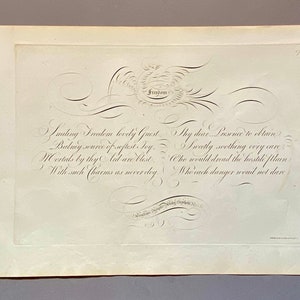 Freedom
Smiling Freedom lovely Guest
Balmy source of softest Joy
Mortals by thy Aid are blest
With such Charms as never cloy
Thy dear Presence to obtain
Sweetly soothing every care
Who would dread the hostile Plain
Who each danger would not dare